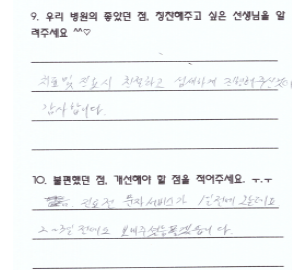 9. 우리 병원의 좋았던 점, 칭찬해주고 싶은 선생님을 알
려주세요 ^^♡
치료 및 진료시 친절하고 섬세하게
감사합니다.
10. 불편했던 점, 개선해야 할 점을 적어주세요. ㅜ.ㅜ
진료전 문자서비스가 1일전에 오는데요
2~3일 전에도 보내주셨으면 좋겠습니다.